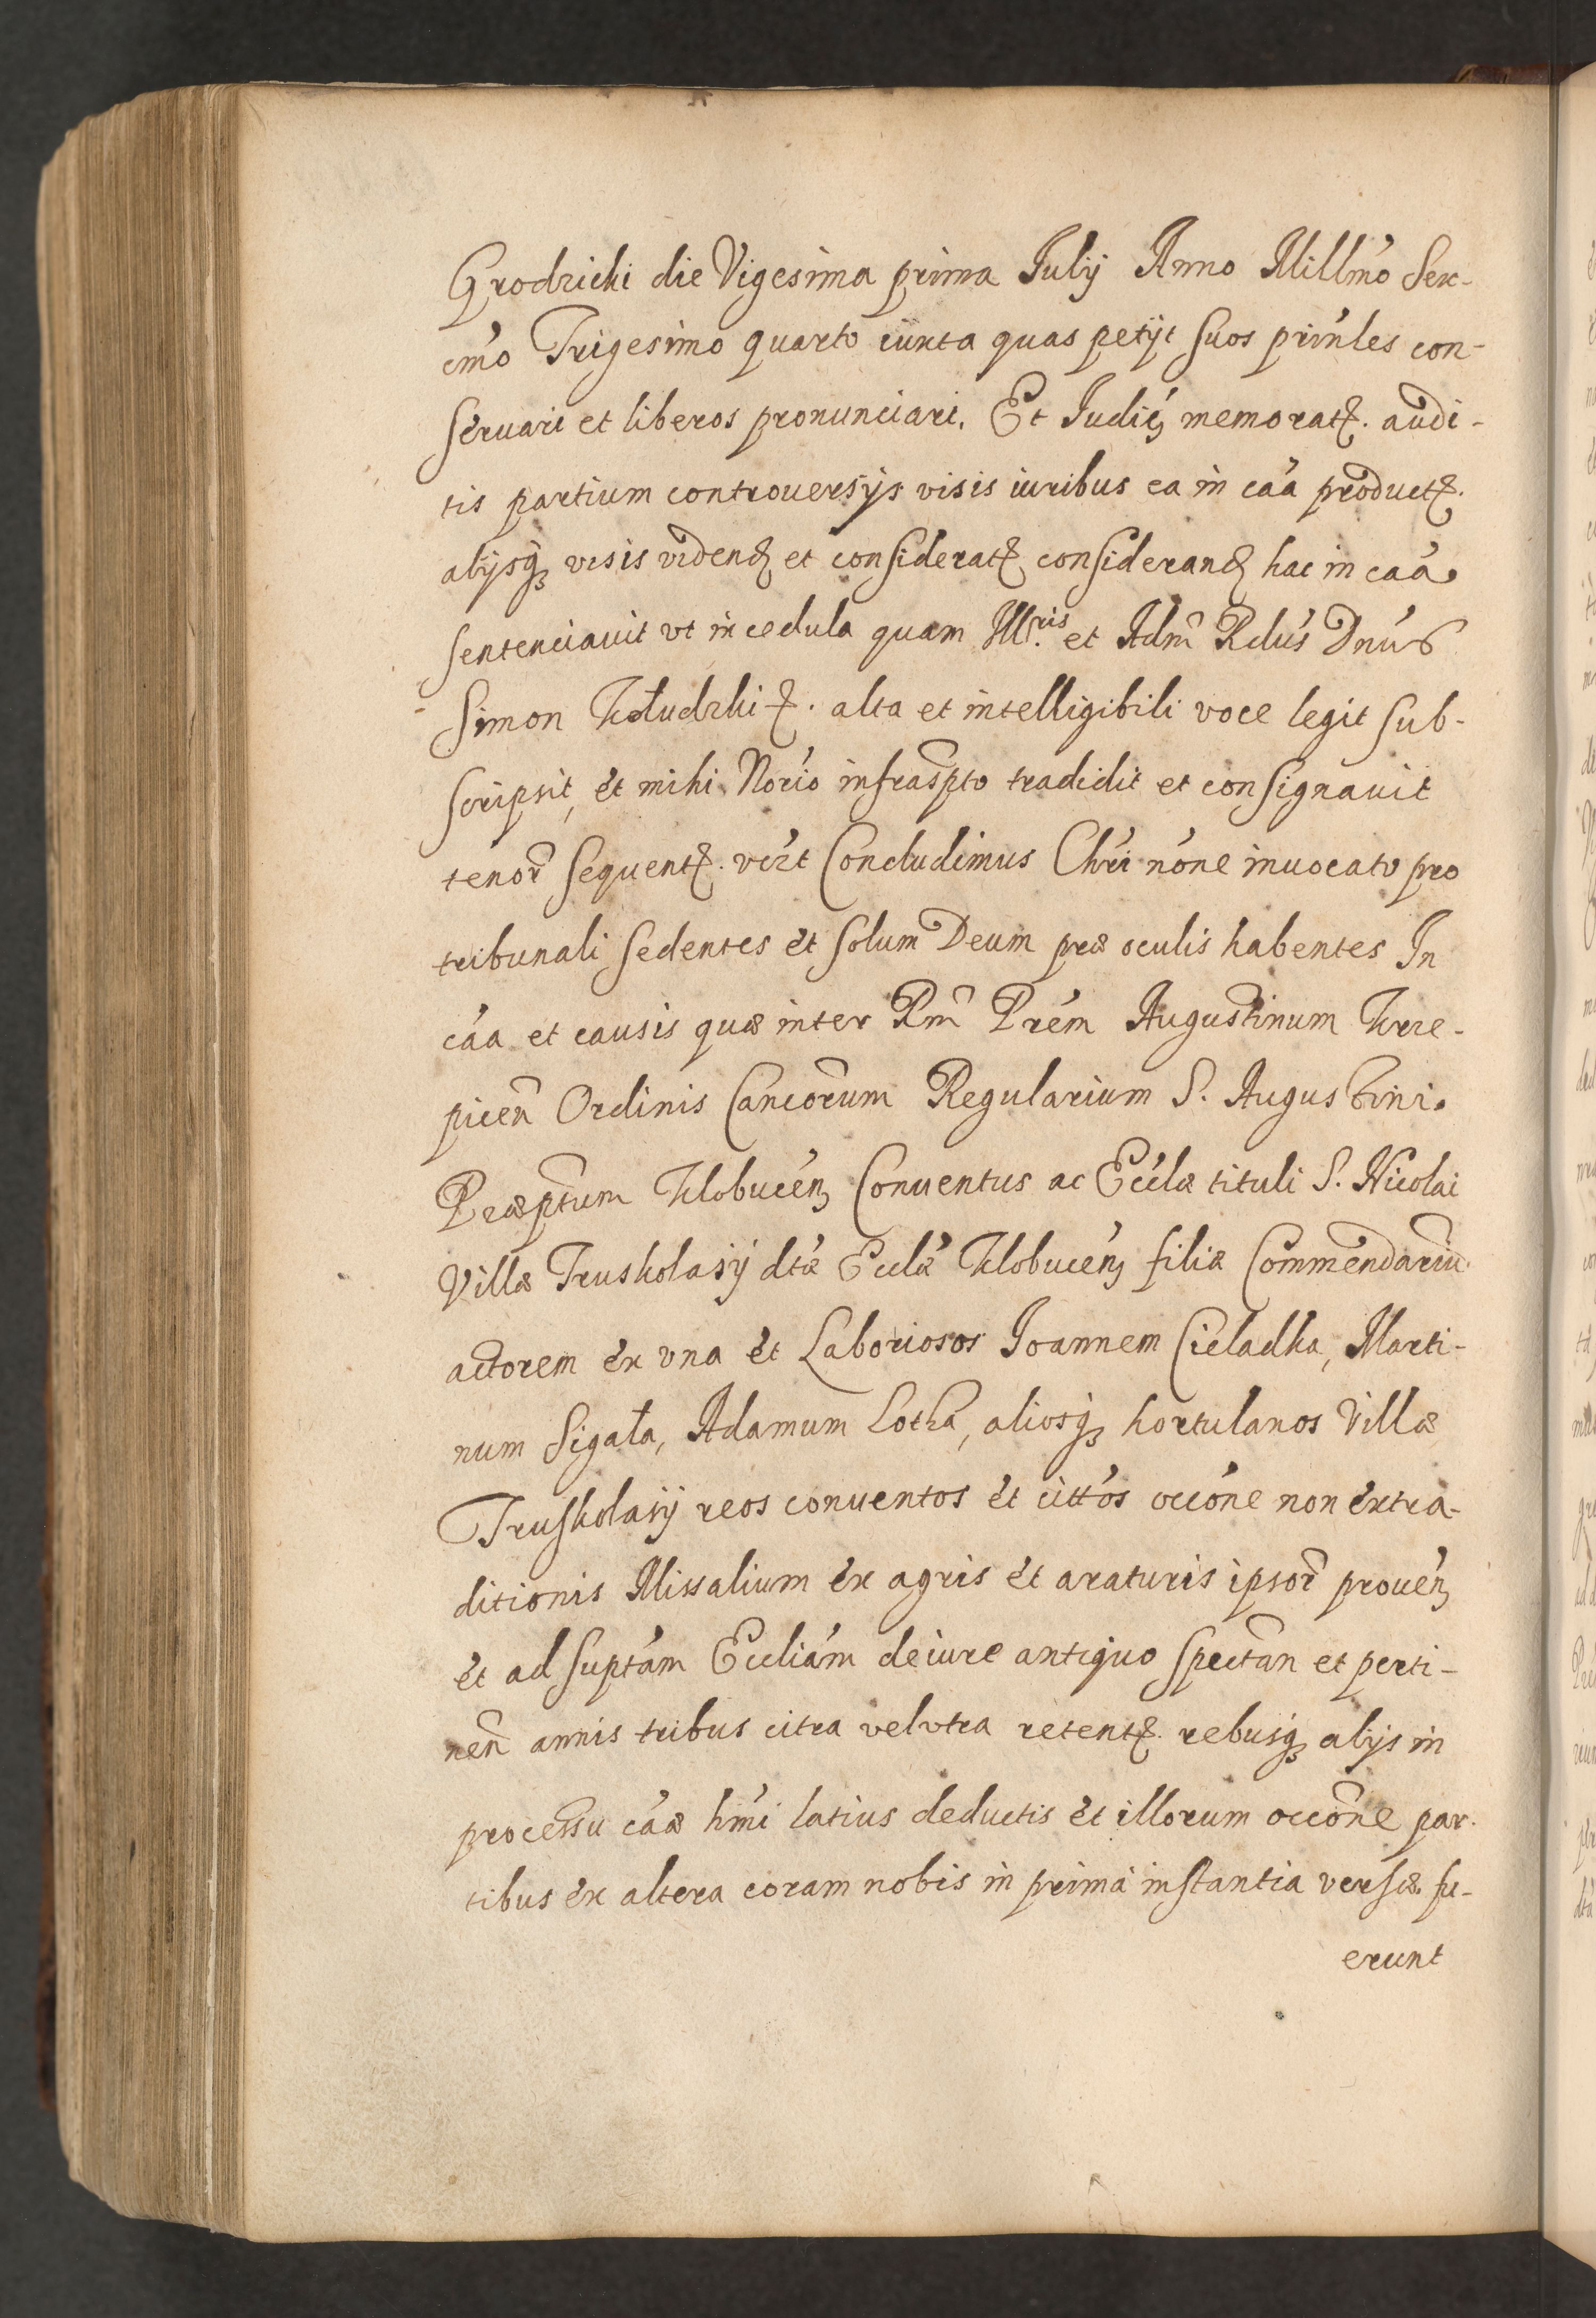 Grodzicki die Vigesima prima Julij Anno Millm̃o Sex-
cm̃o Trigesimo quarto iuxta quas petijt suos prin̄les con-
seruari et liberos pronunciari. Et Judiȩ memoratȩ. audi-
tis partium controuersijs visis iuribus ea in cãa productȩ.
alijsqȝ visis videnȩ et consideratȩ consideranȩ hac in cãa
sentenciauit vt in cedula quam Ill.ris et Adm̃ Rdũs Dnũs
Simon Kołudzki ȩ. alta et intelligibili voce legit sub-
scripsit, et mihi Norĩo infrasp̃to tradidit et consignauit
tenor̃ sequentȩ. vizt Concludimus Chrĩ nõne inuocato pro
tribunali sedentes et solum Deum præ oculis habentes In
cãa et causis quæ inter Rm̃ Prẽm Augustinum Krze-
picen̄ Ordinis Cancõrum Regularium S. Augustini
Præp̃tum Klobucen̄ Conuentus ac Ecclæ̃ tituli S. Nicolai
Villæ Truskolasÿ dtæ̃ Ecclæ̃ Klobucen̄ filiæ Commendariũ
actorem ex vna et Laboriosos Joannem Cieladka, Marti-
num Sigała, Adamum Lotka, aliosqȝ hortulanos Villæ
Truskolasÿ reos conuentos et cittõs occõne non extra-
ditionis Missalium ex agris et araturis ipsor̃ prouen̄
et ad suptãm Eccliãm de iure antiquo spectan̄ et perti-
nen̄ annis tribus citra vel vtra retentȩ. rebusqȝ alijs in
processu cãæ hmĩ latius deductis et illorum occõne par-
tibus ex altera coram nobis in prima instantia versæ fu-
erunt